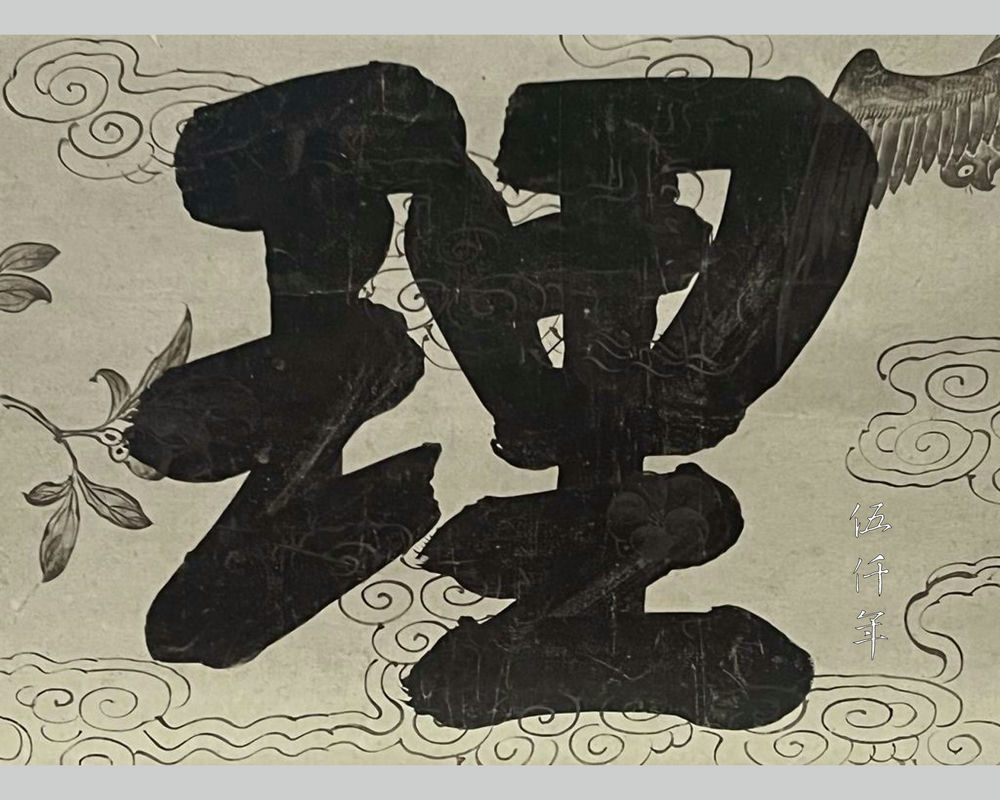 理
伍仟年